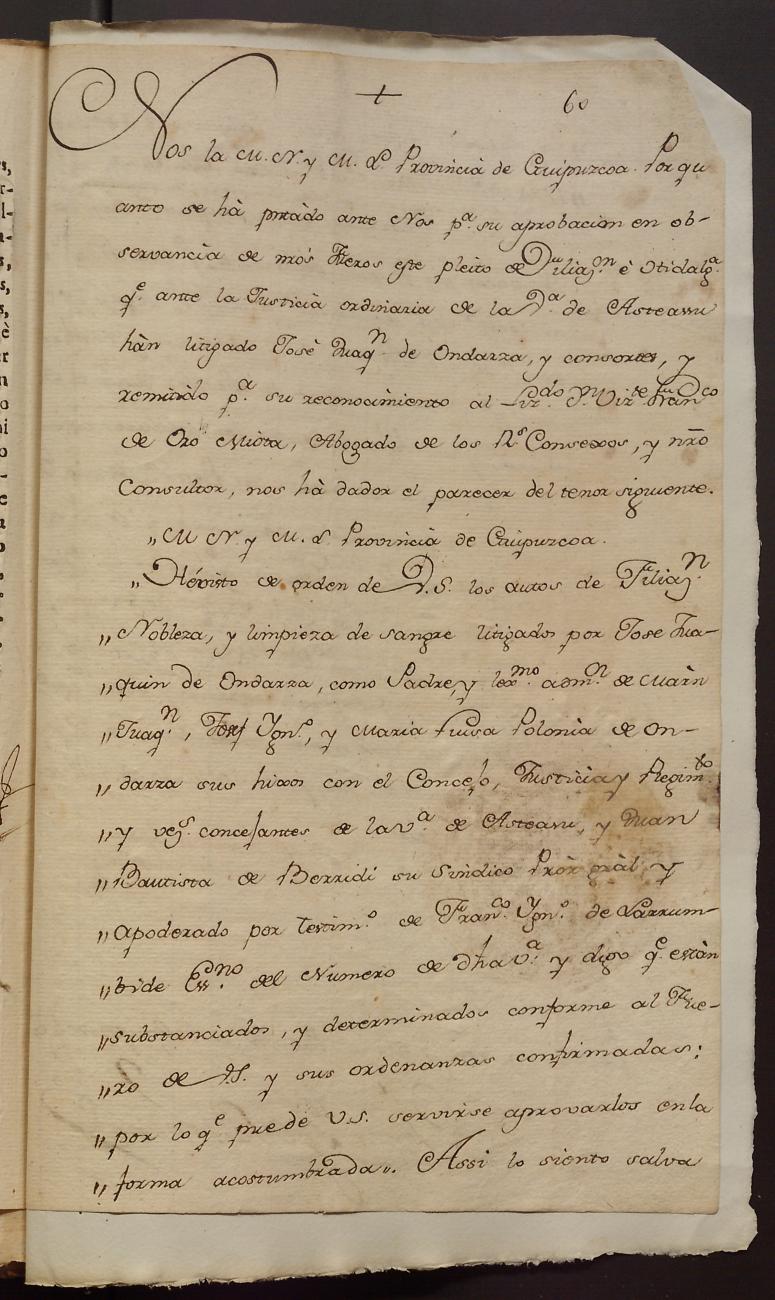 + 60
Nos la M. N. y M. L. Provincia de Guipuzcoa. Por qu
anto se hà pntàdo ante Nos pª. su aprobacion en ob-
servancia de nros Fueros este pleito de Filiaⁿ. è Hidalgª.
qᵉ. ante la Justicia ordinaria de la Vª. de Asteasu
hàn litigado Josè Juaqⁿ. de Ondarza, y consortes, y
remitido pª. su reconocimiento al Lizᵈᵒ. Dⁿ. Vizᵗᵉ. Franᶜᵒ
de Oro Miota, Abogado de los Rˢ. Consexos, y nr̃o
Consultor, nos hà dador el parecer del tenor siguiente.
„ M N. y M. L. Provincia de Guipuzcoa.
„ Hé visto de orden de V.S. los autos de Filiaⁿ.
„ Nobleza, y limpieza de sangre litigados por Jose Jua-
„ quin de Ondarza, como Padre, y lexᵐᵒ. admⁿ. de Marìn
„ Juaqⁿ., Josef Ygnº., y Maria Luisa Polonia de On-
„ darza sus hixos con el Concejo, Justicia y Regimᵗᵒ.
„ y vezˢ. concejantes de la vª. de Asteasu, y Juan
„ Bautista de Berridi su Sindico Pròr gràl y
„ apoderado por testimº. de Franᶜᵒ. Ygnº. de Larrum-
„ bide Essⁿᵒ. del Numero de dha vª. y digo qᵉ. estàn
„ substanciados, y determinados conforme al Fue-
„ ro de V.S. y sus ordenanzas confirmadas;
„ por lo qᵉ puede V.S. servirse aprovarlos en la
„ forma acostumbrada. Assi lo siento salva